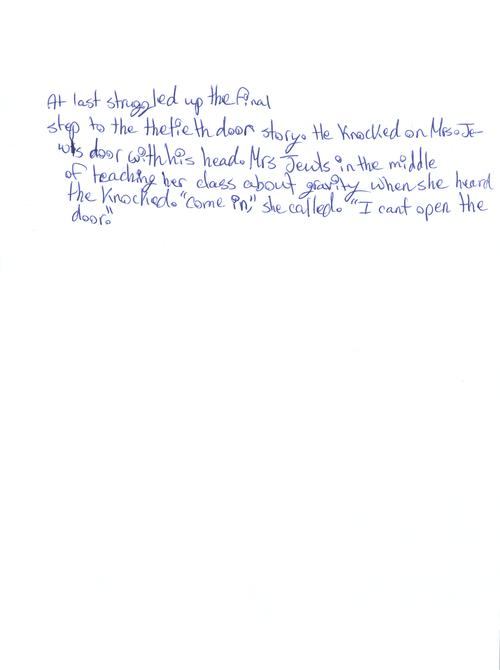 At last struggled up the final
step to the thetieth door story. He Knocked on Mrs. Je-
wls door with his head. Mrs Jewls in the middle
of teaching her class about gravity when she heard
the Knocked. "come in," she called. "I cant open the
door."